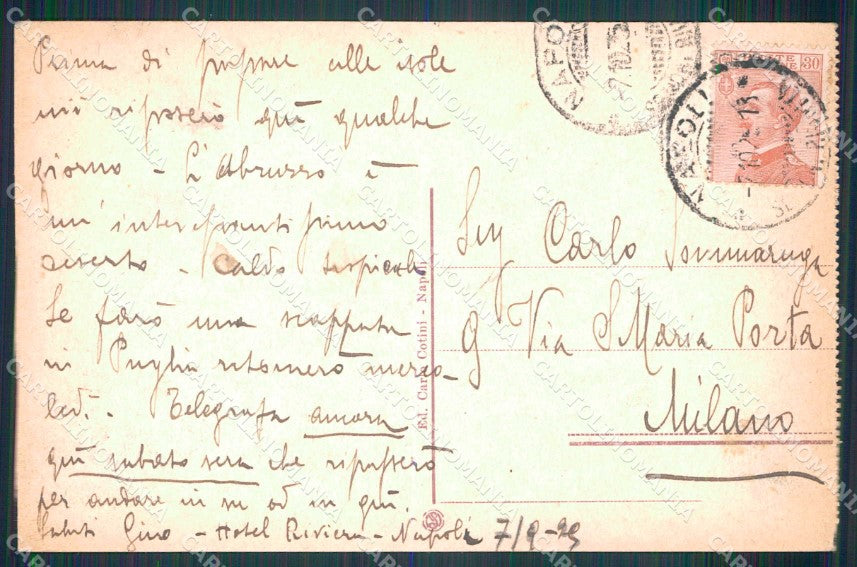 Prima di passare alle isole
mi riposerò quì qualche
giorno - L'Abruzzo è
un'interessantissimo
deserto - Caldo tropicale
Se farò una scappata
in Puglia ritornerò merco-
ledì. Telegrafa ancora
quì sabato sera che ripasserò
per andare in su od in giù.
Saluti Gino - Hotel Riviera - Napoli 7/9-25
Sig Carlo Sommaruga
9 Via S Maria Porta
Milano
Ed. Carlo Cotini - Napoli
NAPOLI
NAPOLI
30
CARTOLINOMANIA